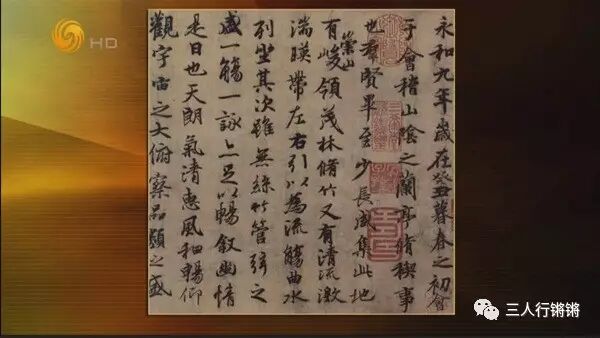 HD
永和九年歲在癸丑暮春之初會
于會稽山陰之蘭亭脩稧事
也羣賢畢至少長咸集此地
有崇山峻領茂林脩竹又有清流激
湍暎帶左右引以為流觴曲水
列坐其次雖無絲竹管弦之
盛一觴一詠亦足以暢敘幽情
是日也天朗氣清惠風和暢仰
觀宇宙之大俯察品類之盛
三人行锵锵